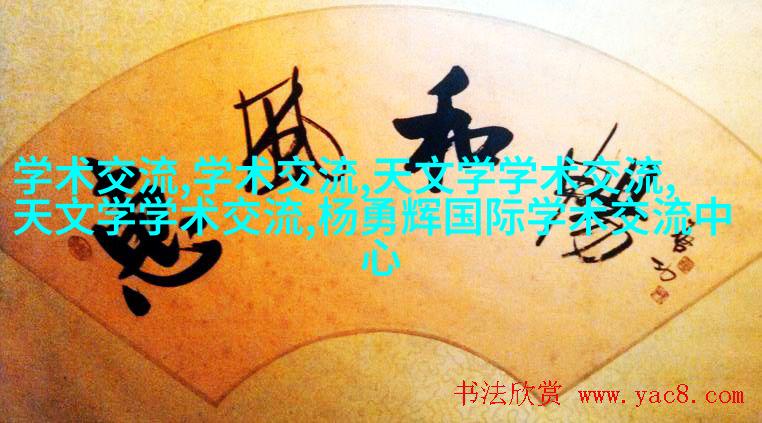 惠風和暢
启功
学术交流,学术交流,天文学学术交流,
天文学学术交流,杨勇辉国际学术交流中
心
书法欣赏 www.yac8.com